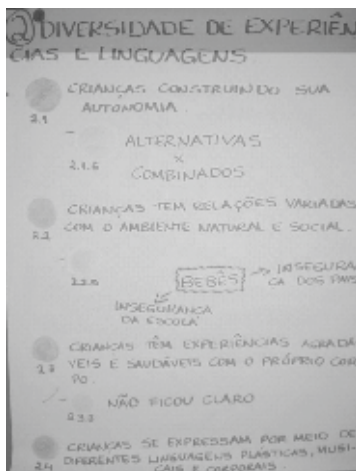 2 DIVERSIDADE DE EXPERIÊN
CIAS E LINGUAGENS
CRIANÇAS CONSTRUINDO SUA
AUTONOMIA.
2.1
ALTERNATIVAS
x
2.1.6
COMBINADOS
CRIANÇAS TEM RELAÇÕES VARIADAS
2.2 COM O AMBIENTE NATURAL E SOCIAL.
BEBÊS → INSEGURAN
ÇA DOS PAIS
INSEGURANÇA
DA ESCOLA
CRIANÇAS TÊM EXPERIÊNCIAS AGRADÁ
2.3 VEIS E SAUDÁVEIS COM O PRÓPRIO COR
PO.
- NÃO FICOU CLARO
2.3.3
CRIANÇAS SE EXPRESSAM POR MEIO DE
2.4 DIFERENTES LINGUAGENS PLÁSTICAS, MUSI
CAIS E CORPORAIS.